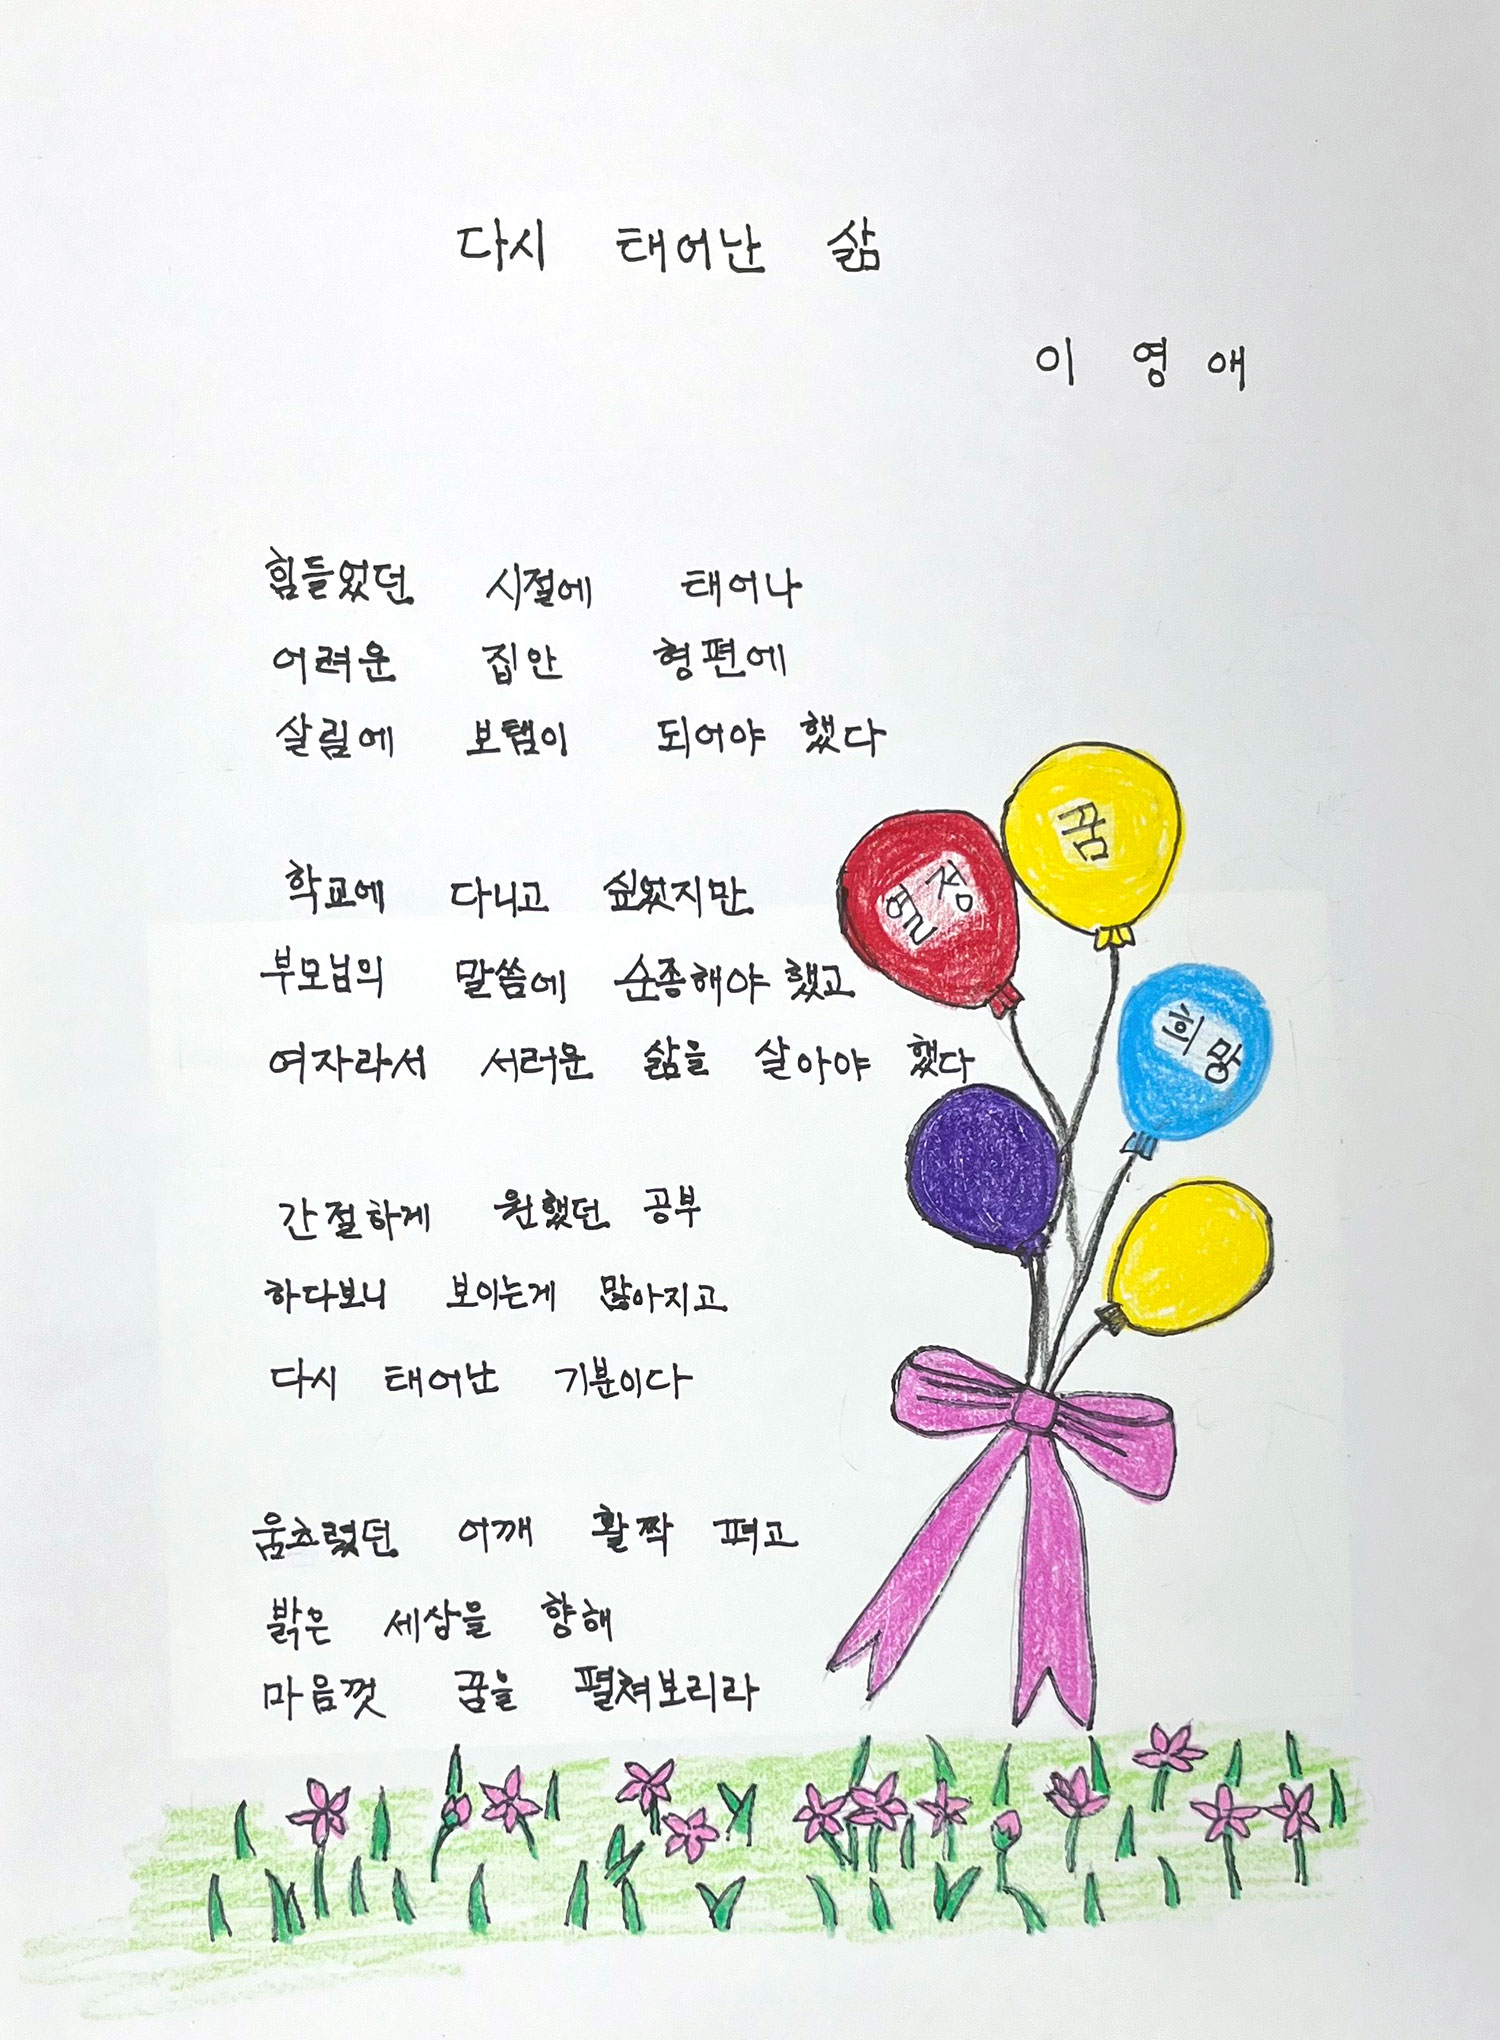 다시 태어난 삶
이 영 애
힘들었던 시절에 태어나
어려운 집안 형편에
살림에 보탬이 되어야 했다
학교에 다니고 싶었지만
부모님의 말씀에 순종해야 했고
여자라서 서러운 삶을 살아야 했다
간절하게 원했던 공부
하다보니 보이는게 많아지고
다시 태어난 기분이다
움츠렸던 어깨 활짝 펴고
밝은 세상을 향해
마음껏 꿈을 펼쳐보리라
열정
꿈
희망